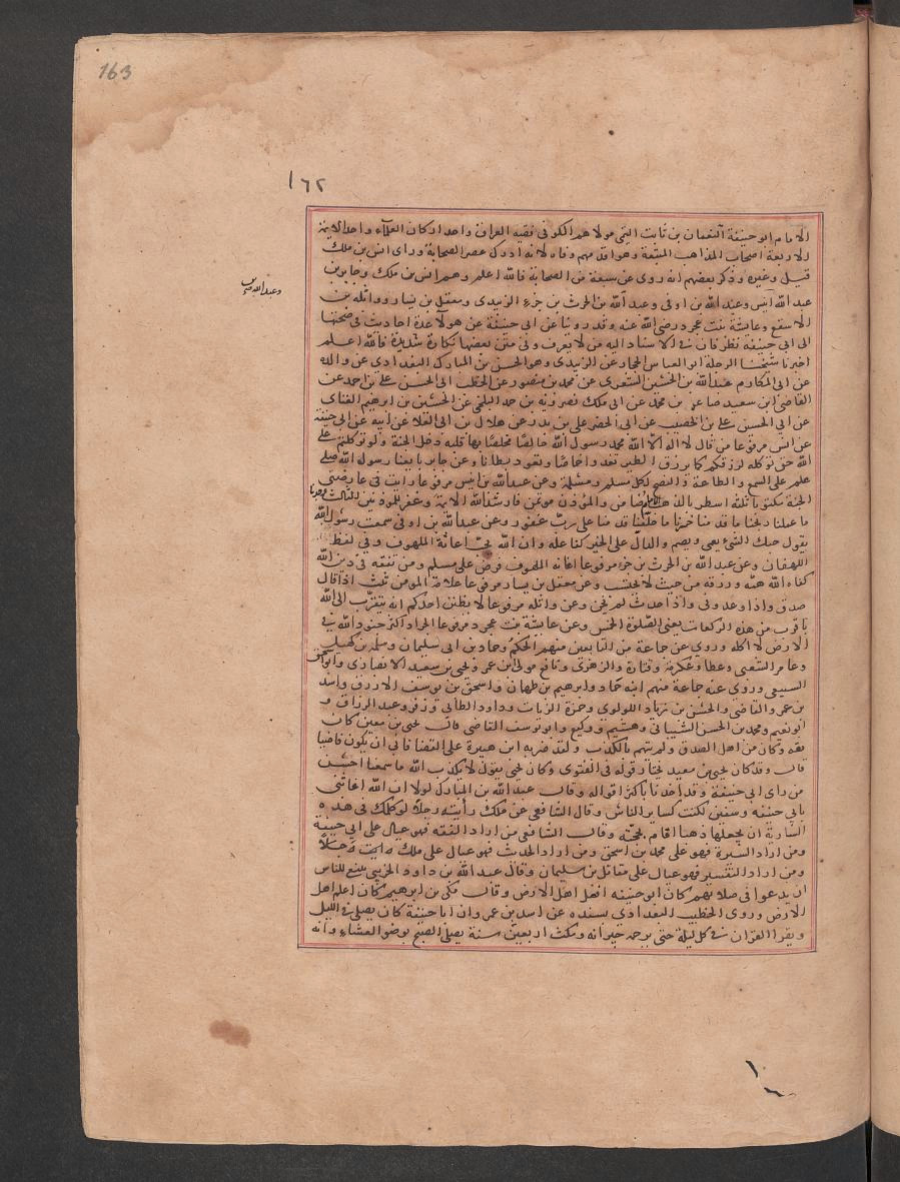 163
١٦٢
الامام ابو حنيفة النعمان بن ثابت التيمى مولاهم الكوفى فقيه العراق واحد اركان العلماء واحد الايمة
الاربعة اصحاب المذاهب المتبعة وهو اقدمهم وفاة لانه ادرك عصر الصحابة وراى انس بن ملك
قيل وغيره وذكر بعضهم انه روى عن سبعة من الصحابة فالله اعلم وهم انس بن ملك وجابر بن
وعبد الله بن
عبد الله انيس وعبد الله بن اوفى وعبد الله بن الحرث بن جزء الزبيدى ومعقل بن يسار وواثلة بن
الاسقع وعايشة بنت عجرد رضى الله عنه وقد روينا عن ابى حنيفة عن هولآ عدة احاديث فى صحتها
الى ابى حنيفة نظر فان فى الاسناد اليه من لا يعرف وفى متن بعضها نكارة شديدة فالله اعلم
اخبرنا شيخنا الرحلة ابو العباس الحجار عن الزبيدى وهو الحسن بن المبارك البغدادى عن والده
عن ابى المكارم عبد الله بن الحسين الشعرى عن محمد بن منصور عن ابى الحسن على بن احمد عن
القاضى ابن سعيد صاعد بن محمد عن ابى ملك نصرويه بن حمد البلخى عن الحسين بن ابرهيم
عن ابى الحسين على بن الخصيب عن ابى الخضر على بن بدر عن هلال بن ابى العلا عن ابيه عن ابى حنيفة
عن انس مرفوعا من قال لا اله الا الله محمد رسول الله خالصا مخلصا بها قلبه دخل الجنة ولو توكلتم على
الله حق توكله لرزقكم كما يرزق الطير تغدو خماصا وتعود بطانا وعن جابر بايعنا رسول الله صلى
علم على السمع والطاعة والنصح لكل مسلم ومسلمة وعن عبد الله بن انيس مرفوعا رايت فى عارضتى
الجنة مكتوبا ثلثة اسطر بالذهب الامام ضامن والموذن موتمن فارشد الله الايمة وغفر للموذنين الثالث
ما عملنا وجدنا ما قدمنا خسرنا ما خلفنا قدمنا على رب غفور وعن عبد الله بن اوفى سمعت رسول الله
يقول حبك الشىء يعمى ويصم والدال على الخير كفاعله وان الله يحب اغاثة الملهوف وفى لفظ
اللهفان وعن عبد الله بن الحرث بن جزء مرفوعا اغاثة الملهوف فرض على مسلم ومن تفقه فى دين الله
كفاه الله همه ورزقه من حيث لا يحتسب وعن معقل بن يسار مرفوعا علامة المومن ثلث اذا قال
صدق واذا وعد وفى واذا حدث لم يخن وعن واثلة مرفوعا لا يظنن احدكم انه يتقرب الى الله
باقرب من هذه الركعات يعنى الصلوة الخمس وعن عايشة بنت عجرد مرفوعا الجراد اكثر جنود الله فى
الارض لا اكله وروى عن جماعة من التابعين منهم الحكم وحماد بن ابى سليمان وسلمة بن كهيل
وعامر الشعبى وعطا وعكرمة وقتادة والزهرى ونافع مولى ابن عمر ويحيى بن سعيد الانصارى وابو اسحق
السبيعى وروى عنه جماعة منهم ابنه حماد وابرهيم بن طهمان واسحق بن يوسف الازرق واسد
بن عمرو القاضى والحسن بن زياد اللولوى وحمزة الزيات وداود الطائى وزفر وعبد الرزاق و
ابو نعيم ومحمد بن الحسن الشيبانى وهشيم ووكيع وابو يوسف القاضى قال يحيى بن معين كان
ثقة وكان من اهل الصدق ولم يتهم بالكذب ولقد ضربه ابن هبيرة على القضا فابى ان يكون قاضيا
قال وقد كان يحيى بن سعيد يختار قوله فى الفتوى وكان يحيى يقول لا نكذب الله ما سمعنا احسن
من راى ابى حنيفة وقد اخذنا باكثر اقواله وقال عبد الله بن المبارك لولا ان الله اغاثنى
بابى حنيفة وسفين لكنت كساير الناس وقال الشافعى عن ملك رايت رجلا لو كلمك فى هذه
السارية ان يجعلها ذهبا لقام بحجته وقال الشافعى من اراد الفقه فهو عيال على ابى حنيفة
ومن اراد السيرة فهو على محمد بن اسحق ومن اراد الحديث فهو عيال على ملك
ومن اراد التفسير فهو عيال على مقاتل بن سليمان وقال عبد الله بن داود الخريبى ينبغى للناس
ان يدعوا فى صلاتهم كان ابو حنيفة افضل اهل الارض وقال مكى بن ابرهيم كان اعلم اهل
الارض وروى الخطيب البغدادى بسنده عن اسد بن عمرو ان ابا حنيفة كان يصلى فى الليل
ويقرا القران فى كل ليلة حتى يرحمه جيرانه ومكث اربعين سنة يصلى الصبح بوضو العشاء وانه